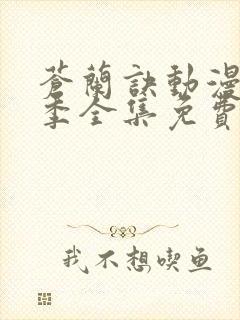 蒼蘭訣動漫
季全集免費
我不想喫鱼